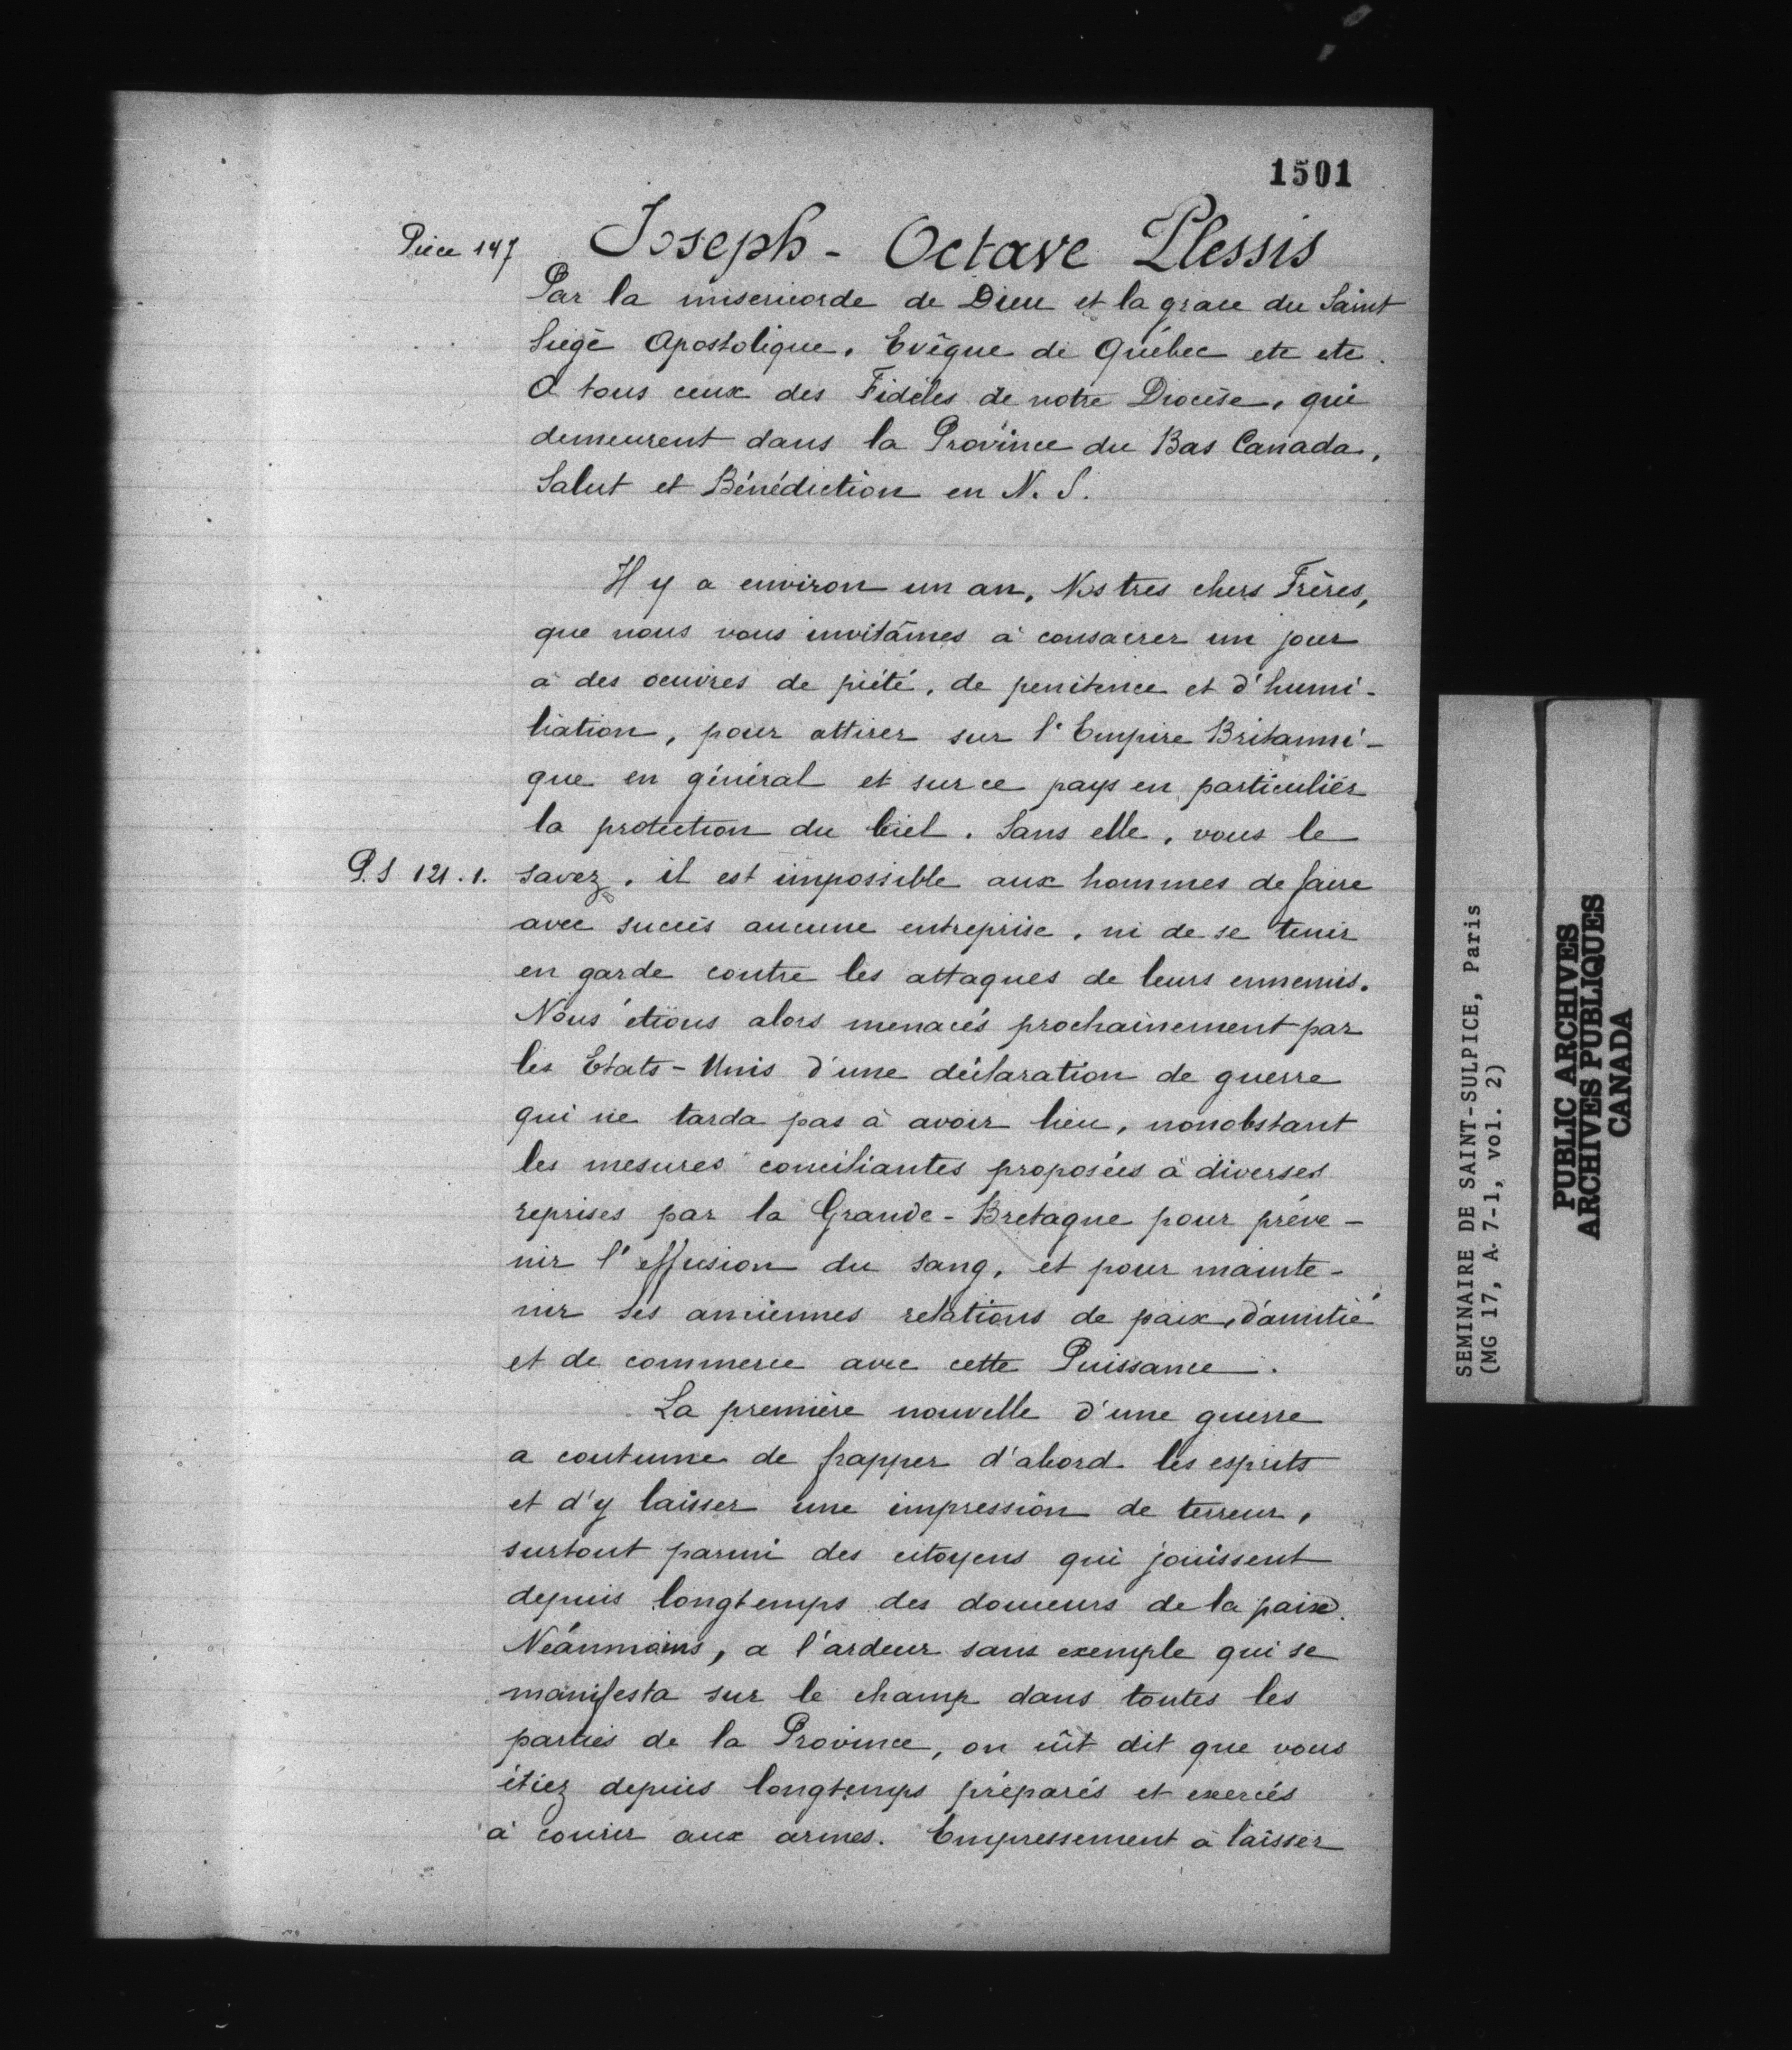 1501
Pièce 147
Joseph - Octave Plessis
Par la misericorde de Dieu et la grace du Saint
Siège Apostolique, Evêque de Québec etc etc.
A tous ceux des Fidèles de notre Diocèse, qui
demeurent dans la Province du Bas Canada,
Salut et Bénédiction en N. S.
Il y a environ un an, Nos tres chers Frères,
que nous vous invitâmes à consacrer un jour
à des oeuvres de piété, de penitence et d'humi-
liation, pour attirer sur l'Empire Britanni-
que en général et sur ce pays en particulier
la protection du Ciel. Sans elle, vous le
P.S 121.1.
savez, il est impossible aux hommes de faire
avec succès aucune entreprise, ni de se tenir
en garde contre les attaques de leurs ennemis.
Nous étions alors menacés prochainement par
les Etats-Unis d'une déclaration de guerre
qui ne tarda pas à avoir lieu, nonobstant
les mesures conciliantes proposées à diverses
reprises par la Grande-Bretagne pour préve-
nir l'effusion du sang, et pour mainte-
nir ses anciennes relations de paix, d'amitié
et de commerce avec cette Puissance.
La première nouvelle d'une guerre
a coutume de frapper d'abord les esprits
et d'y laisser une impression de terreur,
surtout parmi des citoyens qui jouissent
depuis longtemps des douceurs de la paix.
Néanmoins, a l'ardeur sans exemple qui se
manifesta sur le champ dans toutes les
parties de la Province, on eût dit que vous
étiez depuis longtemps préparés et exercés
à courir aux armes. Empressement à laisser
SEMINAIRE DE SAINT-SULPICE, Paris
(MG 17, A 7-1, vol. 2)
PUBLIC ARCHIVES
ARCHIVES PUBLIQUES
CANADA